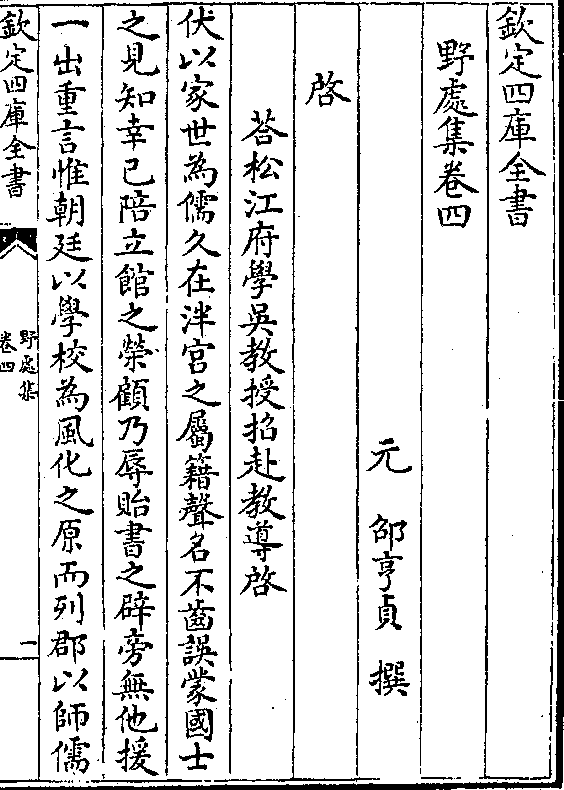 欽定四庫全書
野處集卷四
元 邵亨貞 撰
啓
荅松江府學吳教授招赴教導啓
伏以家世為儒久在泮宮之屬籍聲名不齒誤蒙國士
之見知幸已陪立館之榮顧乃辱貽書之辟旁無他援
一出重言惟朝廷以學校為風化之原而列郡以師儒
欽定四庫全書
野處集
卷四
一